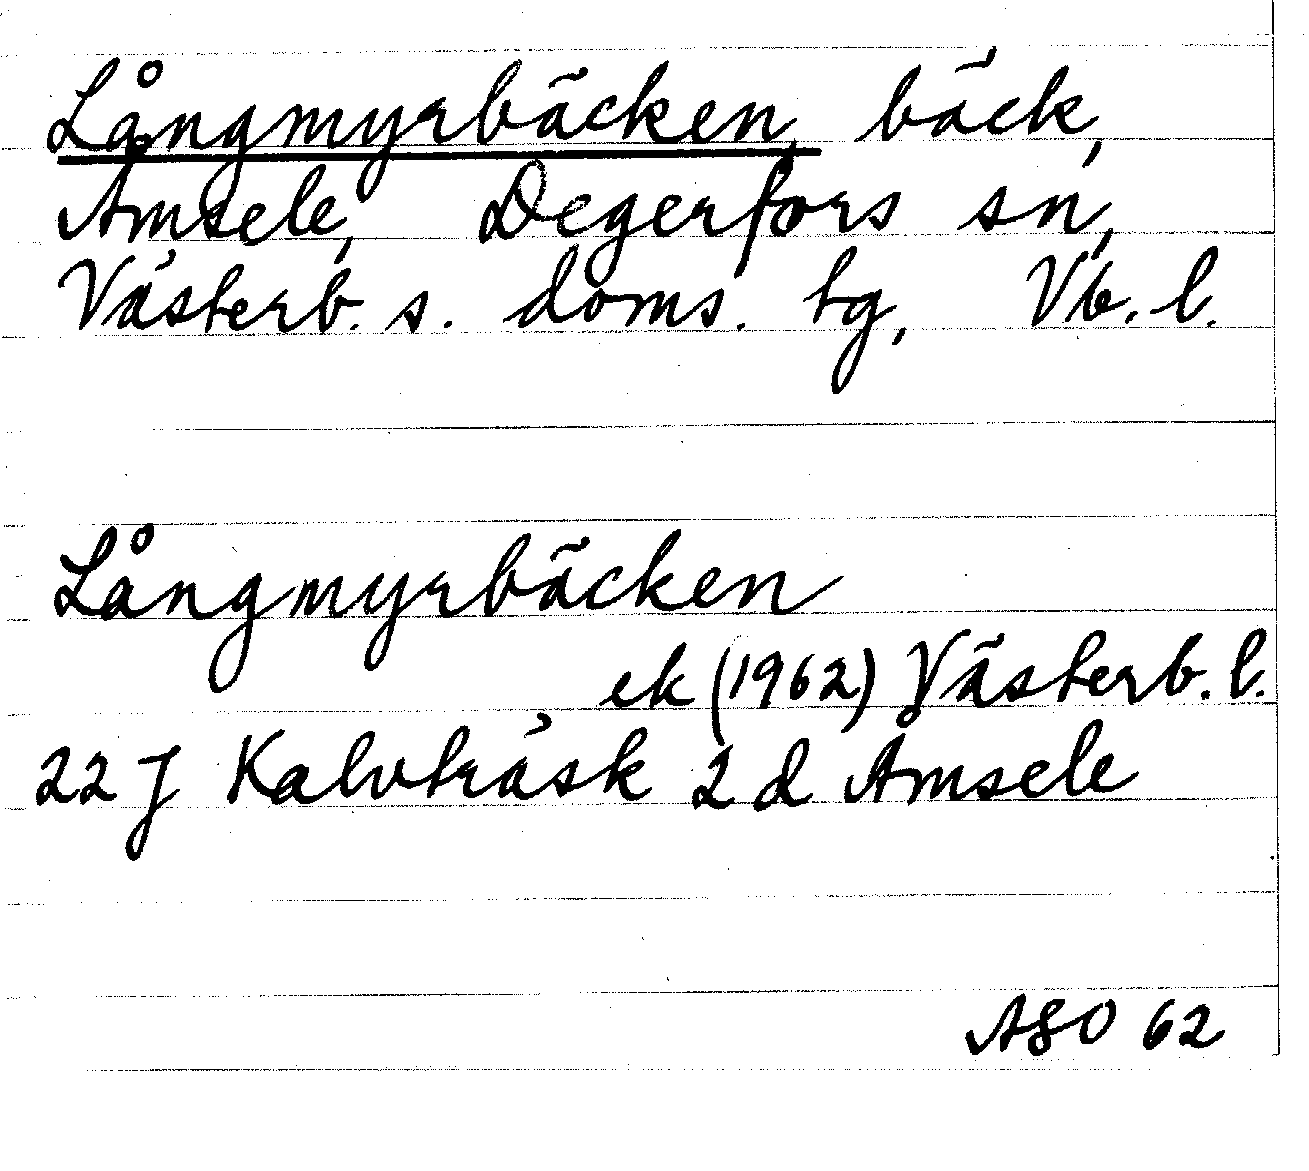 Långmyrbäcken, bäck,
Åmsele, Degerfors sn,
Västerb. s. doms. tg, Vb. l.
Långmyrbäcken
ek (1962) Västerb. l.
22 J Kalvträsk 2 d Åmsele
ASO 62